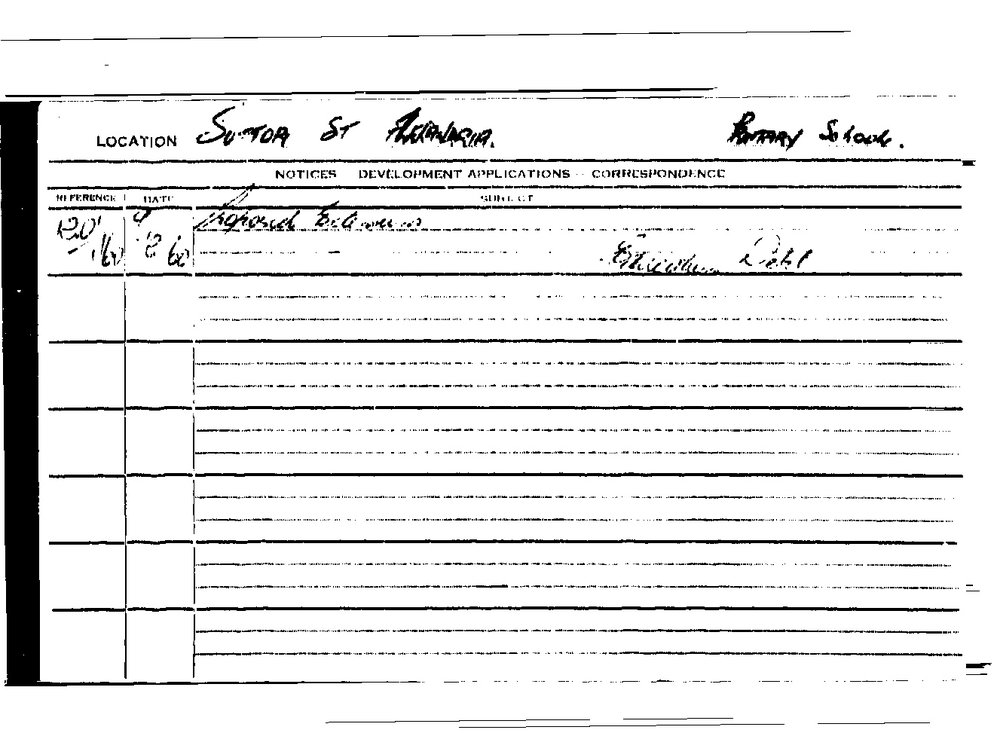 LOCATION SUTTOR ST ALEXANDRIA. PRIMARY SCHOOL.
NOTICES DEVELOPMENT APPLICATIONS - CORRESPONDENCE
REFERENCE DATE SUBJECT
Proposed Extensions
Education Dept